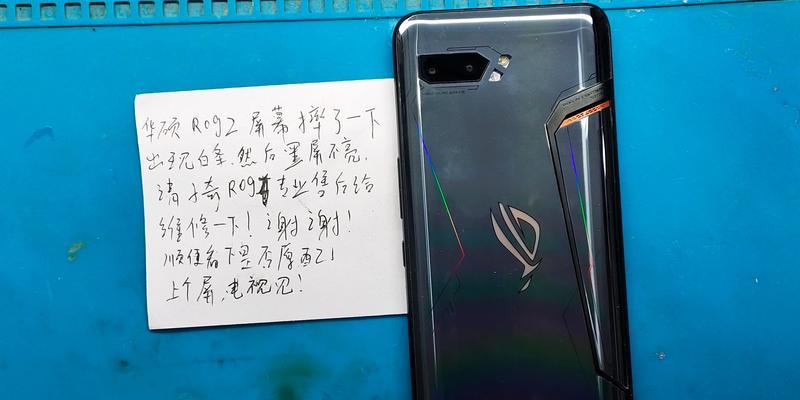 华硕ROG2屏幕摔了一下
出现白条.然后黑屏不亮.
请 ROG 专业售后给
维修一下！谢谢！
顺便看下是否原配！
上个屏,电视见！